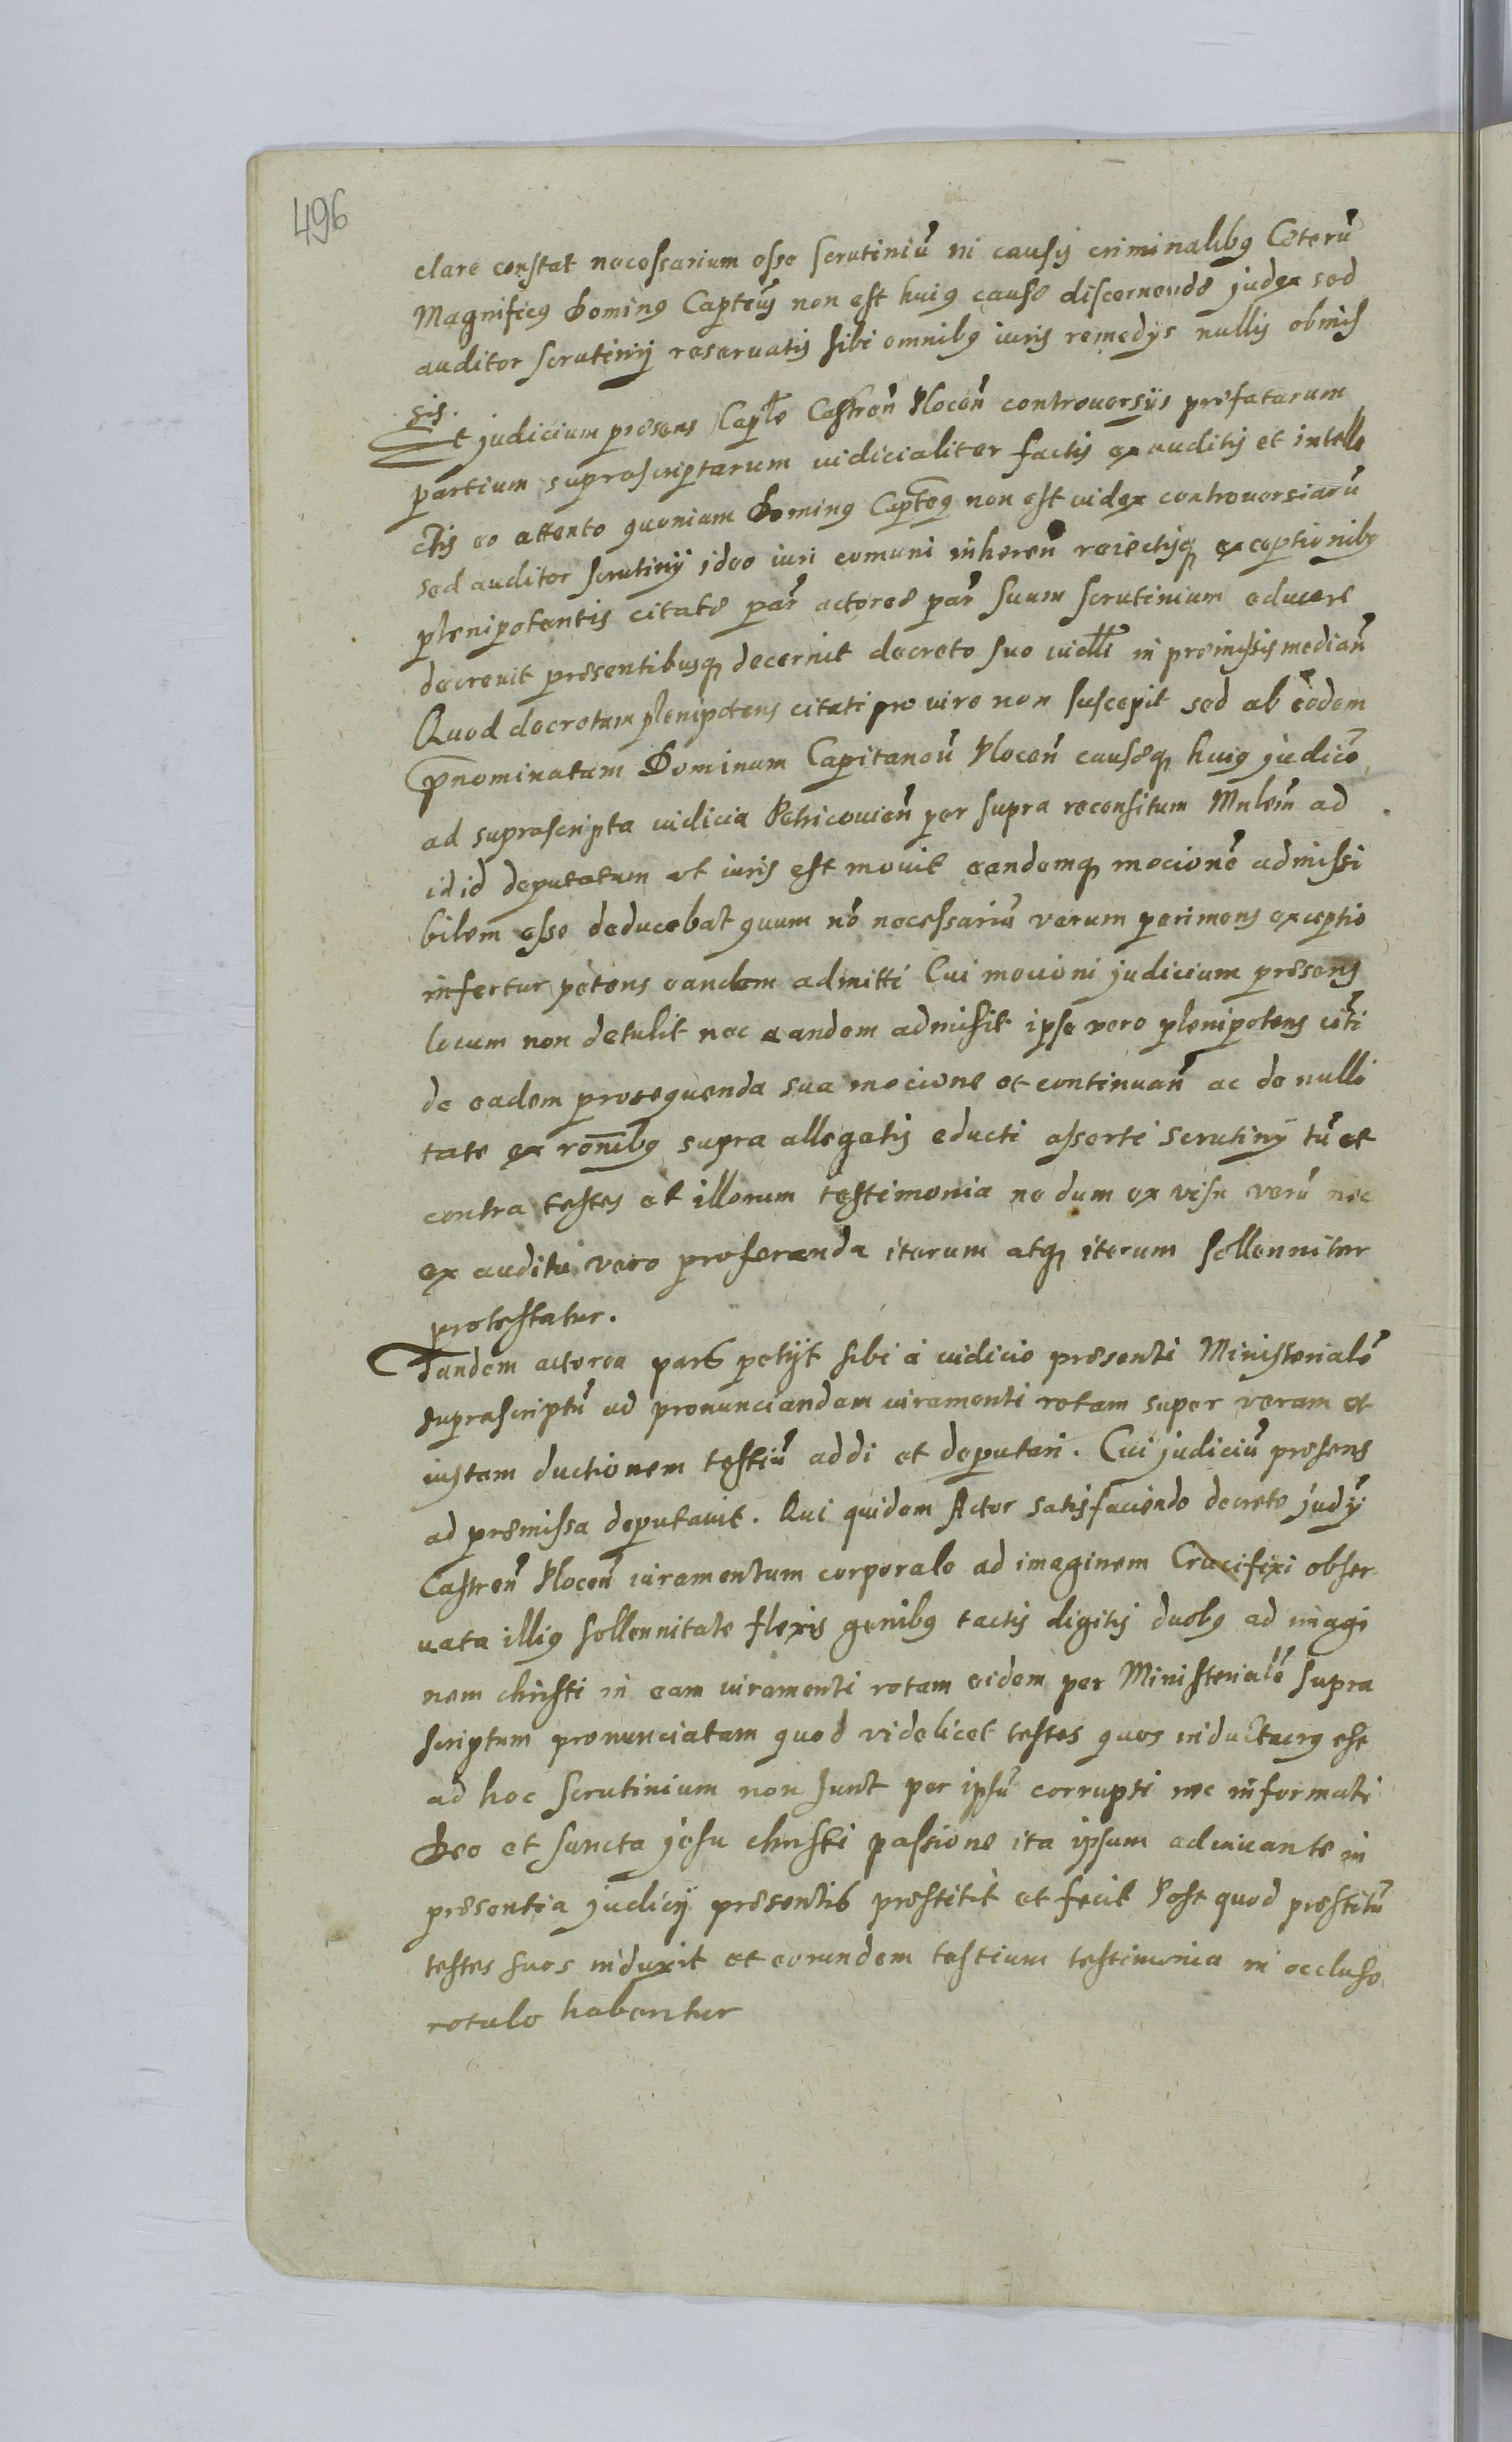 496
clare constat necessarium esse scrutiniũ in causis criminalibꝰ Cęterũ
Magnificꝰ Dominꝰ Capteus non est huiꝰ causę discernendę judex sed
auditor scrutinij reseruatis sibi omnibꝰ iuris remedys nullis obmis
sis.
Et judicium pręsens Caple Castreñ Ploceñ controuersijs pręfatarum
partium suprascriptarum iudicialiter factis exauditis et intelle
ctis eo attento quoniam Dominꝰ Capteꝰ non est iudex controuersiarũ
sed auditor scrutinij ideo iuri comuni inhereñ reiectisqꝫ exceptionibꝰ
plenipotentis citatę par actoreę par suum scrutinium educere
decreuit pręsentibusqꝫ decernit decreto suo in pręmissis mediañ
Quod decretum plenipotens citati pro iure non suscepit sed ab eodem
prnominatum Dominum Capitaneũ Ploceñ causęqꝫ huiꝰ judicẽ
ad suprascripta iudicia Petricouieñ per supra recensitum Mnlem ad
id id deputatum ut iuris est mouit eandemqꝫ mocionẽ admissi
bilem esse deducebat quum nõ necessariũ verum perimens exceptio
infertur petens eandem admitti Cui mocioni judicium pręsens
locum non detulit nec eandem admisit ipse vero plenipotens citi
de eadem prosequenda sua mocione et continuañ ac de nulli
tate ex ronibꝰ supra allegatis educti asserti scrutinij tũ et
contra testes et illorum testimonia ne dum ex visu verũ nec
ex auditu vero proferenda iterum atqꝫ iterum sollenniter
protestatur.
Tandem actorea pars petijt sibi á iudicio pręsenti Ministerialẽ
suprascriptũ ad pronunciandam iuramenti rotam super veram et
iustam ductionem testiũ addi et deputari. Cui judiciũ pręsens
ad pręmissa deputauit. Qui quidem Actor satisfaciendo decreto judÿ
Castreñ Ploceñ iuramentum corporale ad imaginem Crucifixi obser
uata illiꝰ sollennitate flexis genibꝰ tactis digitis duobꝰ ad imagi
nem christi in eam iuramenti rotam eidem per Ministerialẽ supra
scriptum pronunciatam quod videlicet testes quos inducturꝰ est
ad hoc scrutinium non sunt per ipsũ corrupti nec informati
Deo et sancta jesu christi passione ita ipsum adiuuante in
pręsentia judicij pręsentis pręstitit et fecit Post quod pręstitũ
testes suos induxit et eorundem testium testimonia in occluso
rotulo habentur